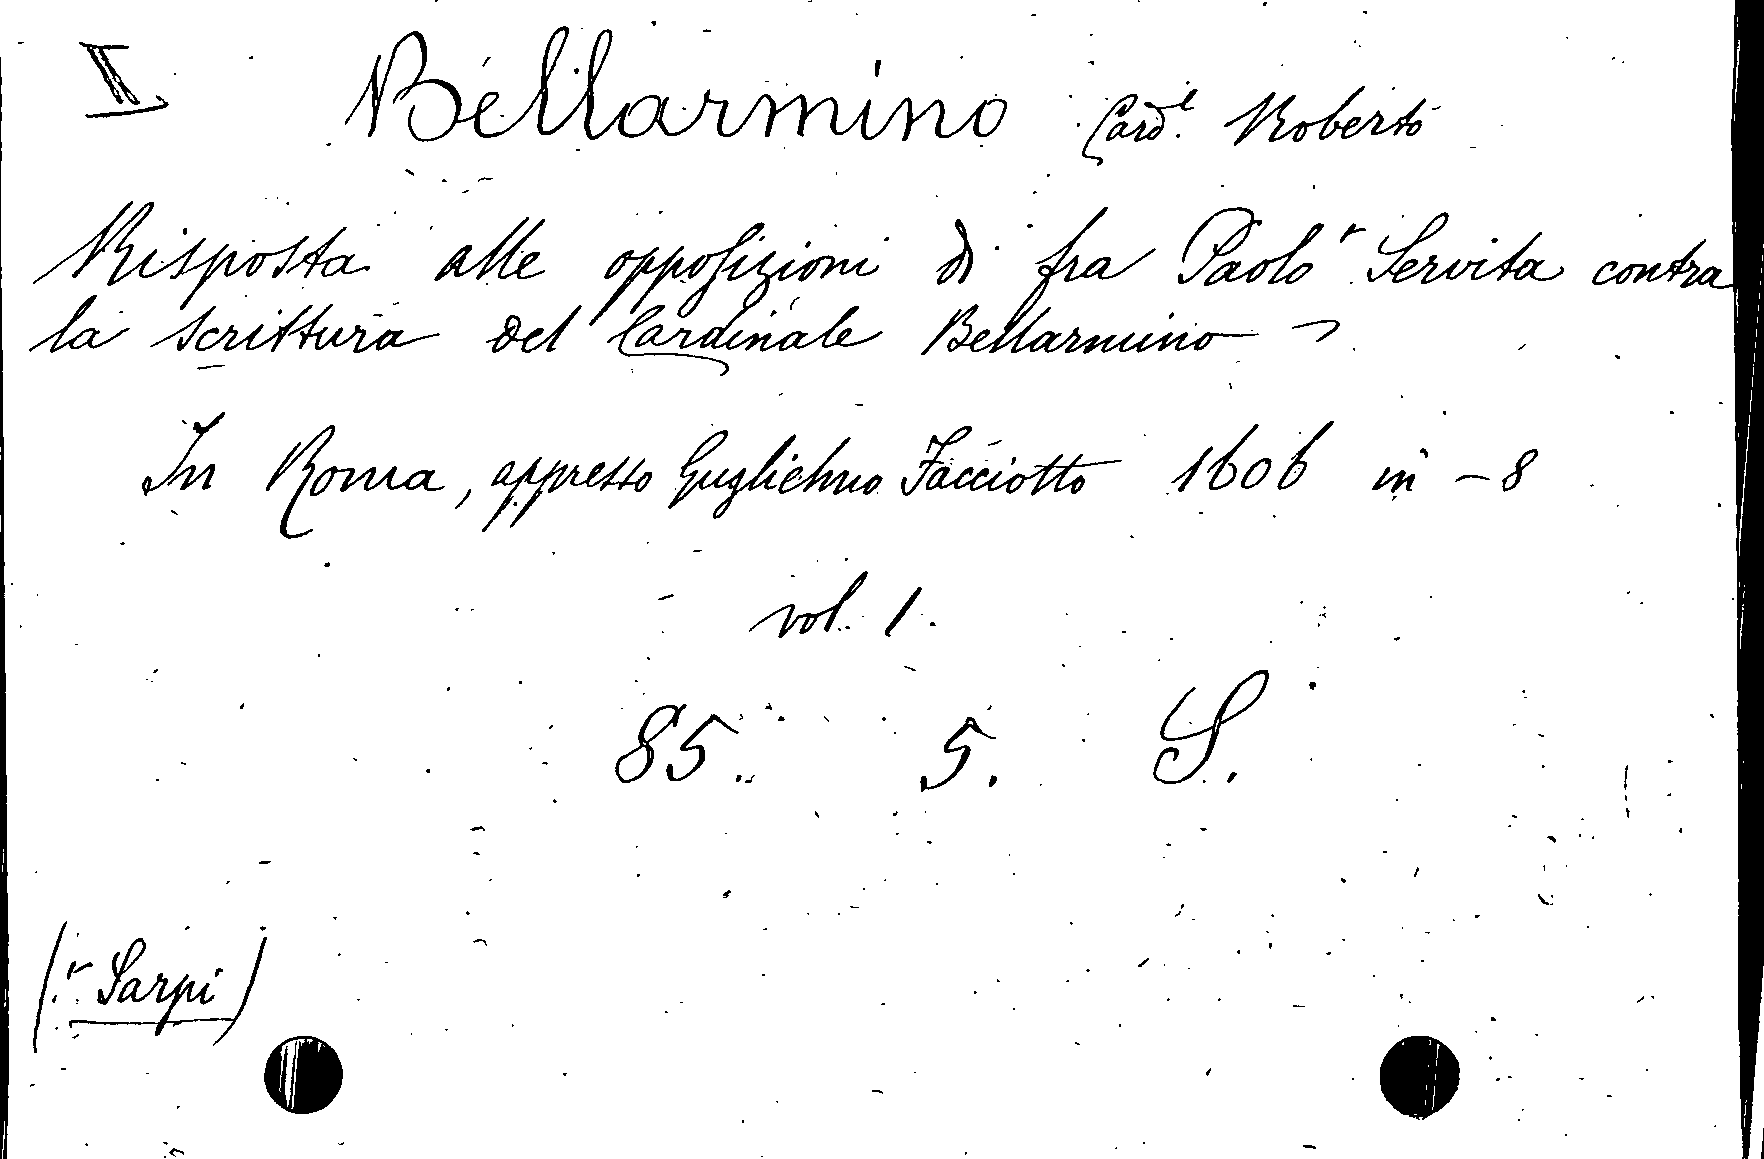 X Bellarmino Card.l Roberto
Risposta alle opposizioni di fra Paolo r Servita contra
la scrittura del Cardinale Bellarmino
In Roma, appresso Guglielmo Facciotto 1606 in -8
vol. 1.
85. 5. S.
(r Sarpi)